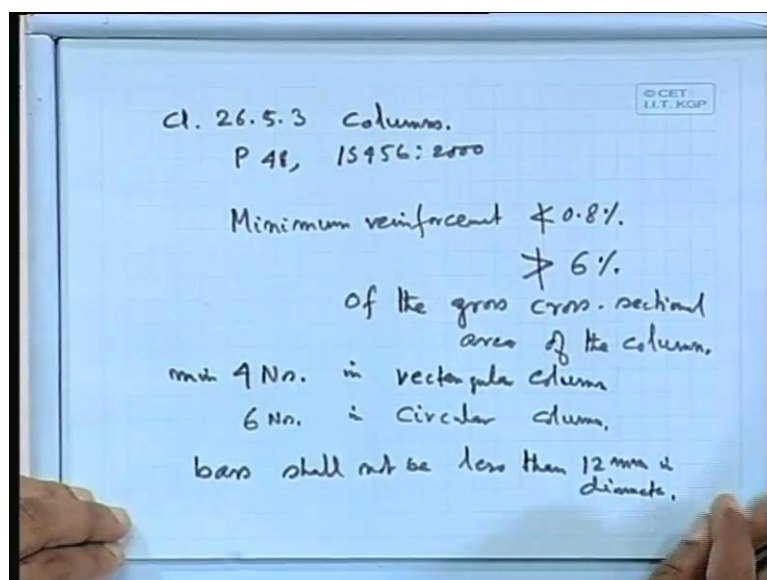 © CET
I.I.T. KGP
Cl. 26.5.3 Columns.
P 48, IS456:2000
Minimum reinforcement ≮ 0.8%.
≯ 6%.
of the gross cross-sectional
area of the column.
min 4 No. in rectangular column
6 No. in circular column.
bars shall not be less than 12 mm in
diameter.